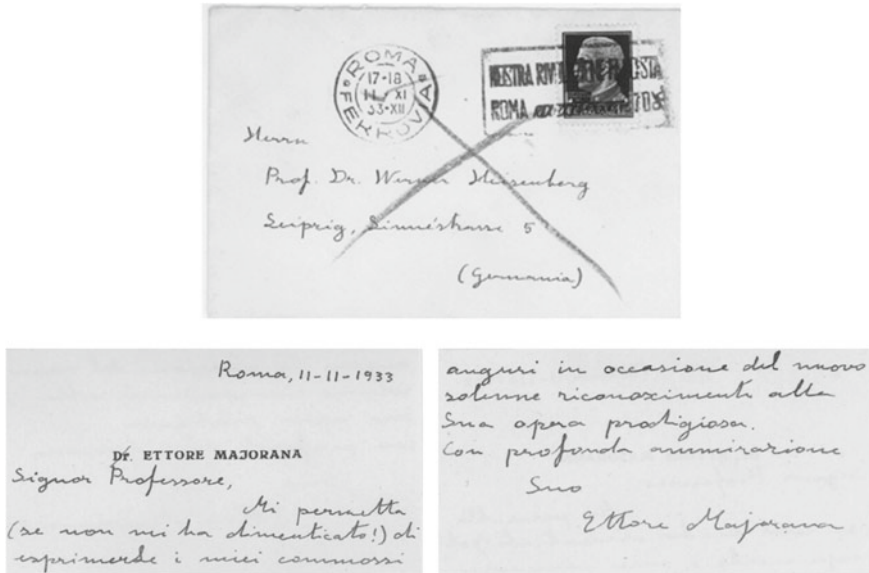 ROMA
17-18
11 XI
33-XII
FERROVIA
MOSTRA
ROMA
Herrn
Prof. Dr. Werner Heisenberg
Leipzig, Linnéstrasse 5
(Germania)
Roma, 11-11-1933
Dr. ETTORE MAJORANA
Signor Professore,
Mi permetta
(se non mi ha dimenticato!) di
esprimerle i miei commossi
auguri in occasione del nuovo
solenne riconoscimento alla
Sua opera prodigiosa.
Con profonda ammirazione
Suo
Ettore Majorana